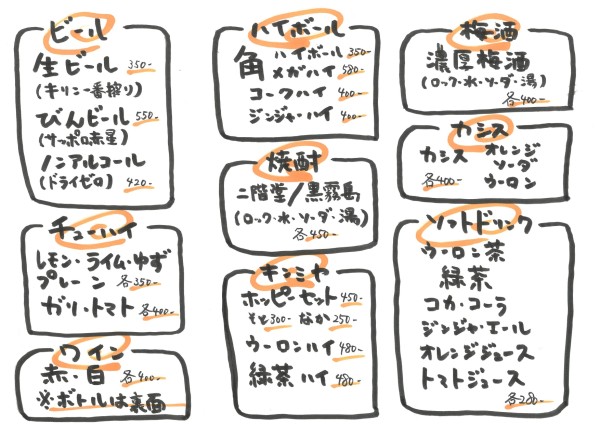 ビール
生ビール 350-
(キリン一番搾り)
びんビール 550-
(サッポロ赤星)
ノンアルコール
(ドライゼロ) 420-
チューハイ
レモン・ライム・ゆず
プレーン 各350-
ガリ・トマト 各400-
ワイン
赤・白 各400-
※ボトルは裏面
ハイボール
角 ハイボール 350-
メガハイ 580-
コークハイ 400-
ジンジャーハイ 400-
焼酎
二階堂/黒霧島
(ロック・水・ソーダ・湯)
各450-
キンミヤ
ホッピーセット 450-
そと300- なか250-
ウーロンハイ 480-
緑茶ハイ 480-
梅酒
濃厚梅酒
(ロック・水・ソーダ・湯)
各400-
カシス
カシス オレンジ
ソーダ
各400- ウーロン
ソフトドリンク
ウーロン茶
緑茶
コカ・コーラ
ジンジャエール
オレンジジュース
トマトジュース
各280-